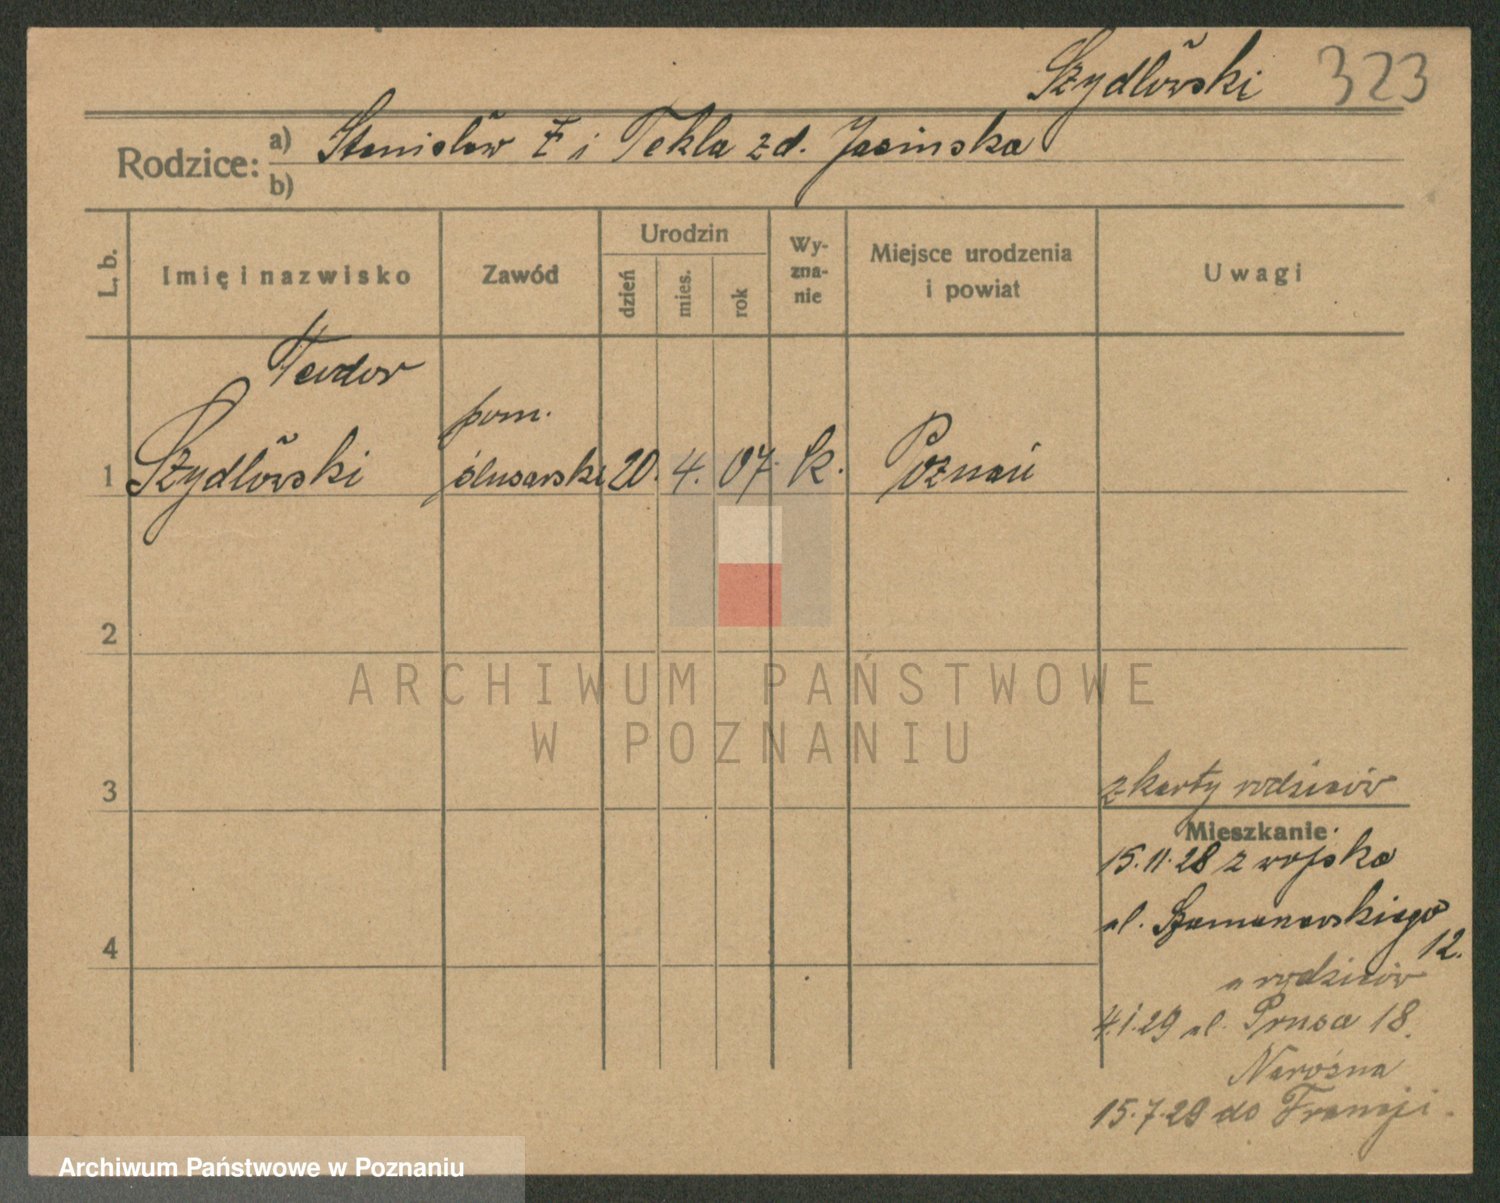 Szydlowski 323
Rodzice:
a) Stanisław i Tekla zd. Jasinska
b)
L. b.
Imię i nazwisko
Zawód
Urodzin
dzień
mies.
rok
Wy-
zna-
nie
Miejsce urodzenia
i powiat
Uwagi
Teodor
1 Szydlowski
pom.
ślusarski
20. 4. 07. k. Poznań
2
3
4
z karty rodziców
Mieszkanie
15.11.28 z wojska
ul. Szamanowskiego
12.
u rodziców
4.1.29 ul. Prusa 18.
Narożna
15.7.29 do Francji.
ARCHIWUM PAŃSTWOWE
W POZNANIU
Archiwum Państwowe w Poznaniu